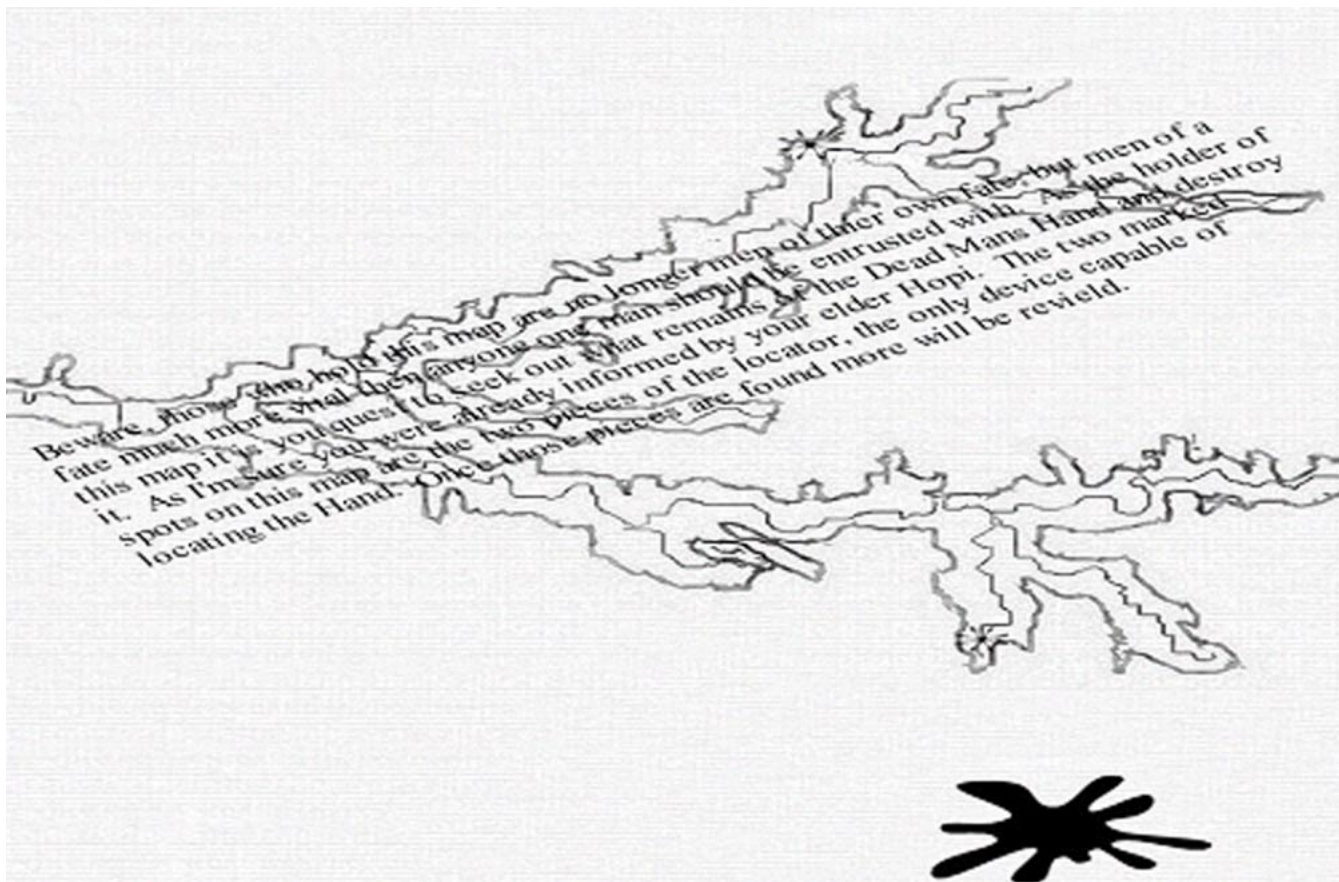 Beware, those who hold this map are no longer men of thier own fate, but men of a
fate much more vital then anyone one man should be entrusted with. As the holder of
this map it is you quest to seek out what remains of the Dead Mans Hand and destroy
it. As I'm sure you were already informed by your elder Hopi. The two marked
spots on this map are the two pieces of the locator, the only device capable of
locating the Hand. Once those pieces are found more will be revield.